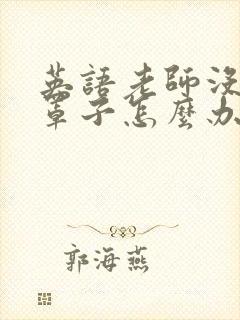 英語老師沒
罩子怎麼办
郭海燕